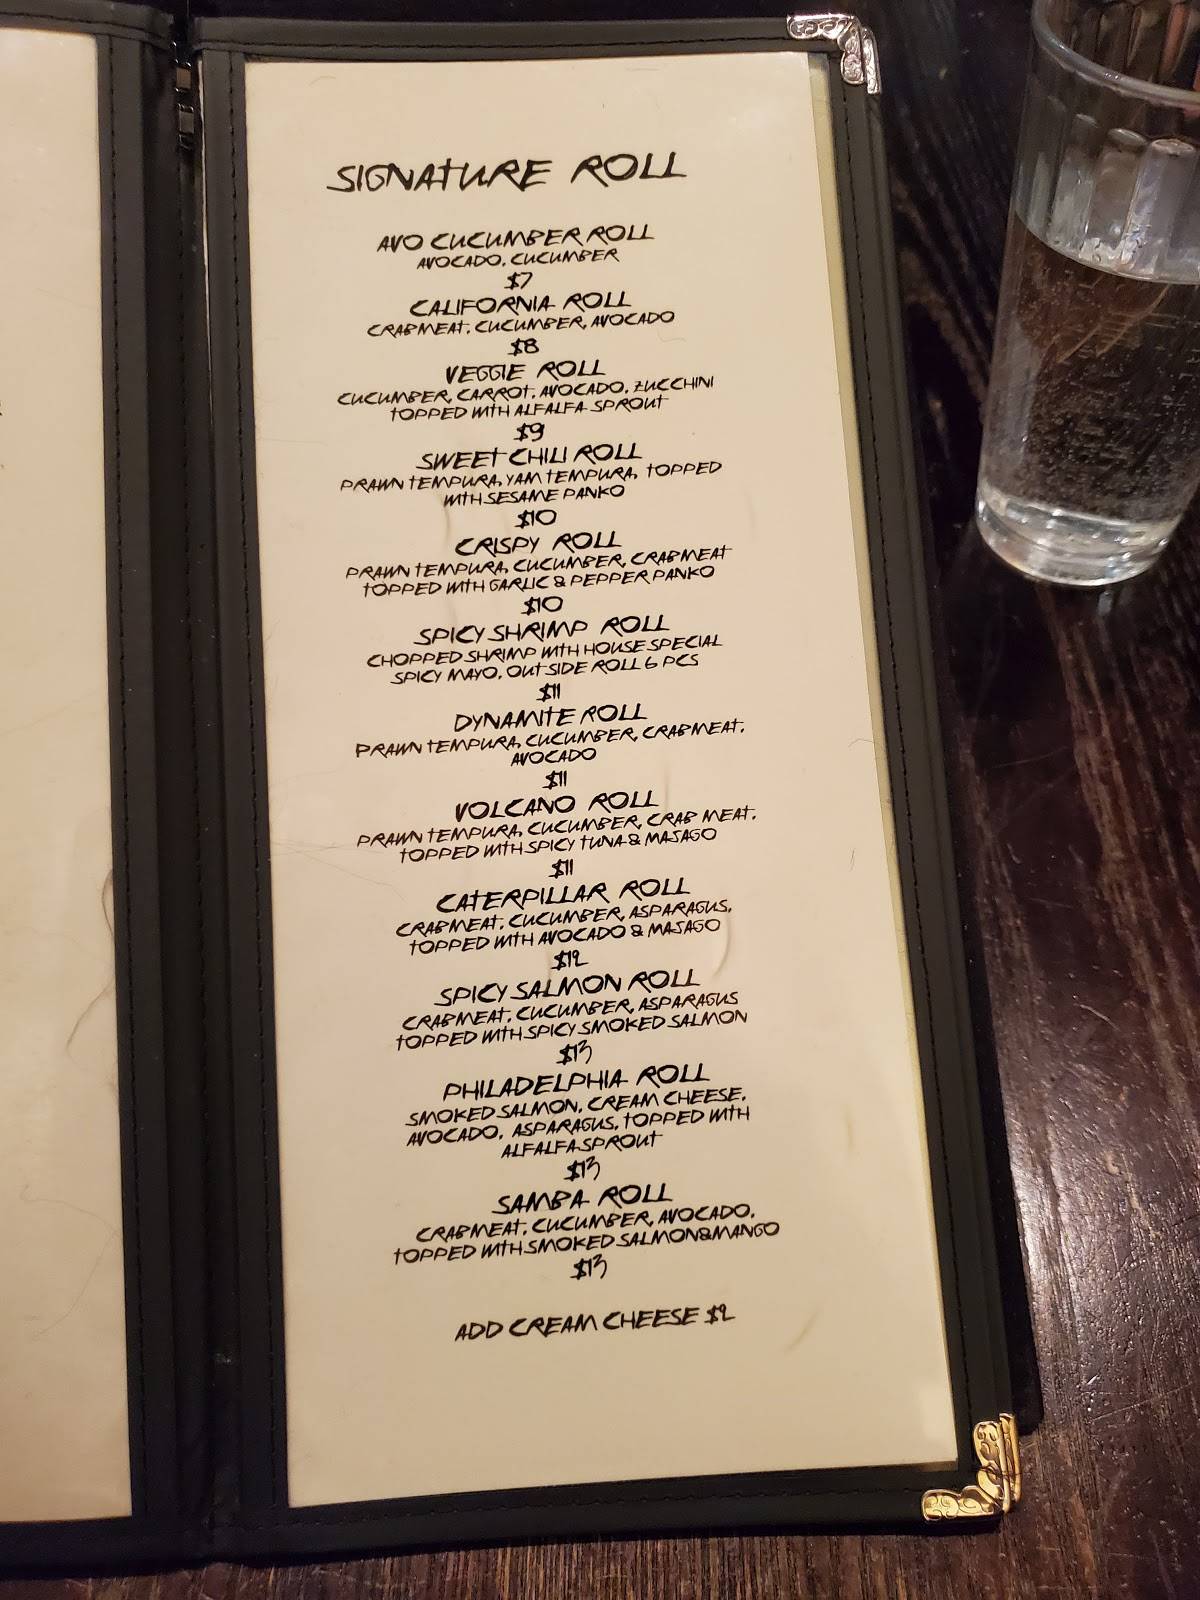 SIGNATURE ROLL
AVO CUCUMBER ROLL
AVOCADO, CUCUMBER
$7
CALIFORNIA ROLL
CRABMEAT, CUCUMBER, AVOCADO
$8
VEGGIE ROLL
CUCUMBER, CARROT, AVOCADO, ZUCCHINI
TOPPED WITH ALFALFA SPROUT
$9
SWEET CHILI ROLL
PRAWN TEMPURA, YAM TEMPURA, TOPPED
WITH SESAME PANKO
$10
CRISPY ROLL
PRAWN TEMPURA, CUCUMBER, CRABMEAT
TOPPED WITH GARLIC & PEPPER PANKO
$10
SPICY SHRIMP ROLL
CHOPPED SHRIMP WITH HOUSE SPECIAL
SPICY MAYO, OUT SIDE ROLL 6 PCS
$11
DYNAMITE ROLL
PRAWN TEMPURA, CUCUMBER, CRABMEAT,
AVOCADO
$11
VOLCANO ROLL
PRAWN TEMPURA, CUCUMBER, CRAB MEAT,
TOPPED WITH SPICY TUNA & MASAGO
$11
CATERPILLAR ROLL
CRABMEAT, CUCUMBER, ASPARAGUS,
TOPPED WITH AVOCADO & MASAGO
$12
SPICY SALMON ROLL
CRABMEAT, CUCUMBER, ASPARAGUS
TOPPED WITH SPICY SMOKED SALMON
$13
PHILADELPHIA ROLL
SMOKED SALMON, CREAM CHEESE,
AVOCADO, ASPARAGUS, TOPPED WITH
ALFALFA SPROUT
$13
SAMBA ROLL
CRABMEAT, CUCUMBER, AVOCADO,
TOPPED WITH SMOKED SALMON&MANGO
$13
ADD CREAM CHEESE $2